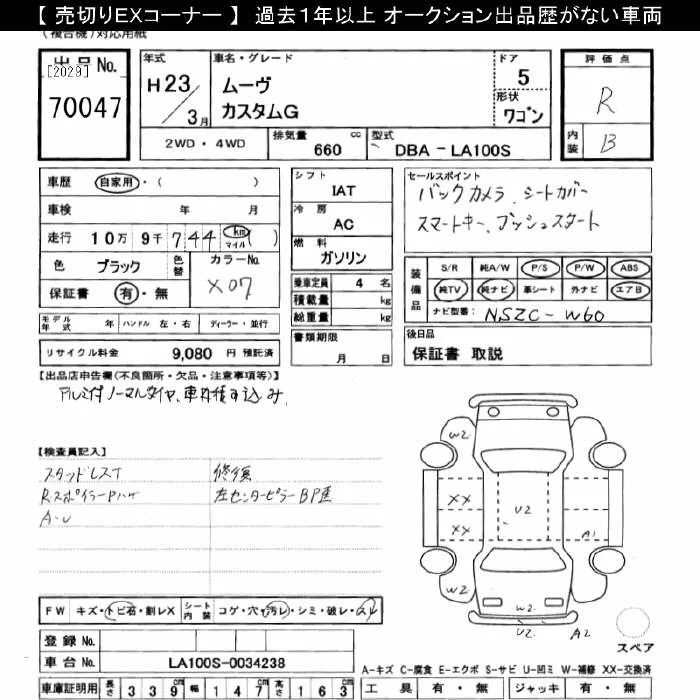 【 売切りEXコーナー 】 過去１年以上 オークション出品歴がない車両
(複合機)対応用紙
出 品 No.
[2029]
70047
年式
H 23 / 3月
車名・グレード
ムーヴ
カスタムG
ドア
5
形状
ワゴン
評 価 点
R
内装
B
2WD ・ 4WD
排気量
660 cc
型式
DBA － LA100S
車歴 自家用・( )
車検 年 月
走行 10万 9千 7 4 4 km マイル ( )
色 ブラック
色替
カラーNo.
X07
保証書 有・無
モデル年式 年
ハンドル 左・右
ディーラー・並行
リサイクル料金 9,080 円 預託済
シフト
IAT
冷 房
AC
燃 料
ガソリン
乗車定員 4 名
積載量 kg
総重量 kg
書類期限
月 日
セールスポイント
バックカメラ、シートカバー
スマートキー、プッシュスタート
装備品
S/R 純A/W P/S P/W ABS
純TV 純ナビ 革シート 外ナビ エアB
ナビ型番: NSZC-W60
後日品
保証書 取説
【出品店申告欄(不良箇所・欠品・注意事項等)】
アルミ付ノーマルタイヤ、車内積み込み、
【検査員記入】
スタッドレスT
修復
RスポイラーPハゲ
左センターピラーBP歪
A・U
W2
W2
XX
XX
U2
A1
W2
W2
U2
U2
A2
スペア
FW キズ・トビ石・割レX
シート内装 コゲ・穴・汚レ・シミ・破レ・スレ
登録 No.
車台 No. LA100S-0034238
車庫証明用 長さ 339 幅 147 高さ 163
A－キズ C－腐食 E－エクボ S－サビ U－凹ミ W－補修 XX－交換済
工 具 有・無
ジャッキ 有・無